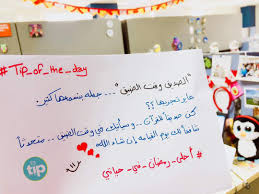 #Tip_of_the_day
"الصديق وقت الضيق".. جملة بنسمعها كتير
عايز تجربها؟؟
كن صديقاً للقرآن.. وسيأتيك في وقت الضيق.. متحدثاً
شافعاً لك يوم القيامة إن شاء الله
#أحلى_رمضان_في_حياتي
tip